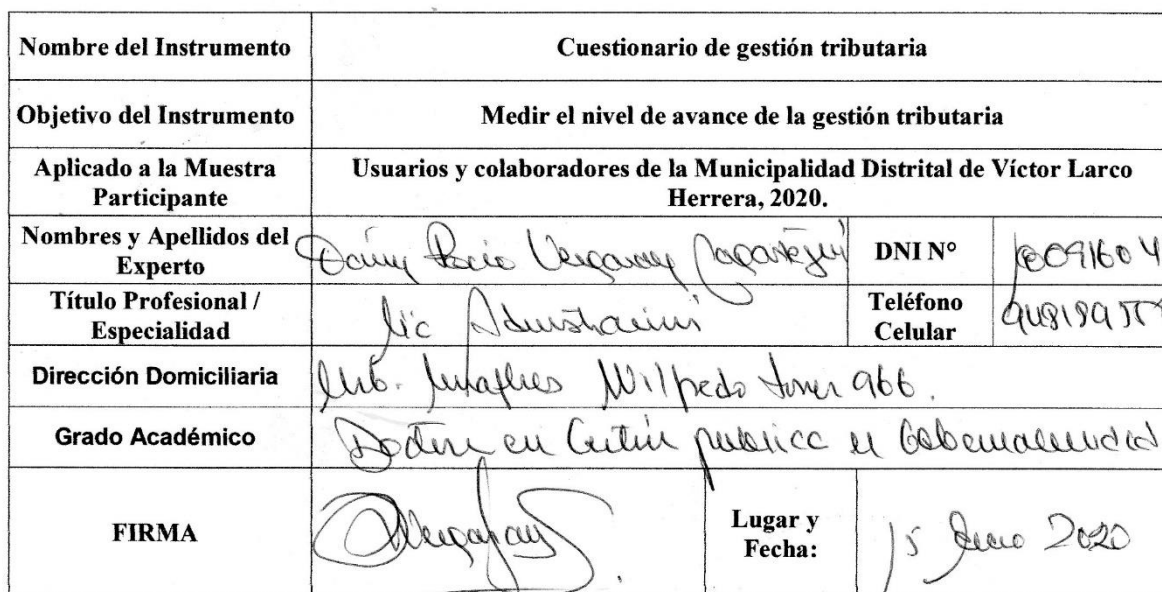 Nombre del Instrumento
Cuestionario de gestión tributaria
Objetivo del Instrumento
Medir el nivel de avance de la gestión tributaria
Aplicado a la Muestra
Participante
Usuarios y colaboradores de la Municipalidad Distrital de Víctor Larco
Herrera, 2020.
Nombres y Apellidos del
Experto
Rocío Vergaray
DNI N°
Título Profesional /
Especialidad
lic
Teléfono
Celular
Dirección Domiciliaria
Urb. Wilfredo 966.
Grado Académico
en publica
FIRMA
Vergaray
Lugar y
Fecha:
15 2020